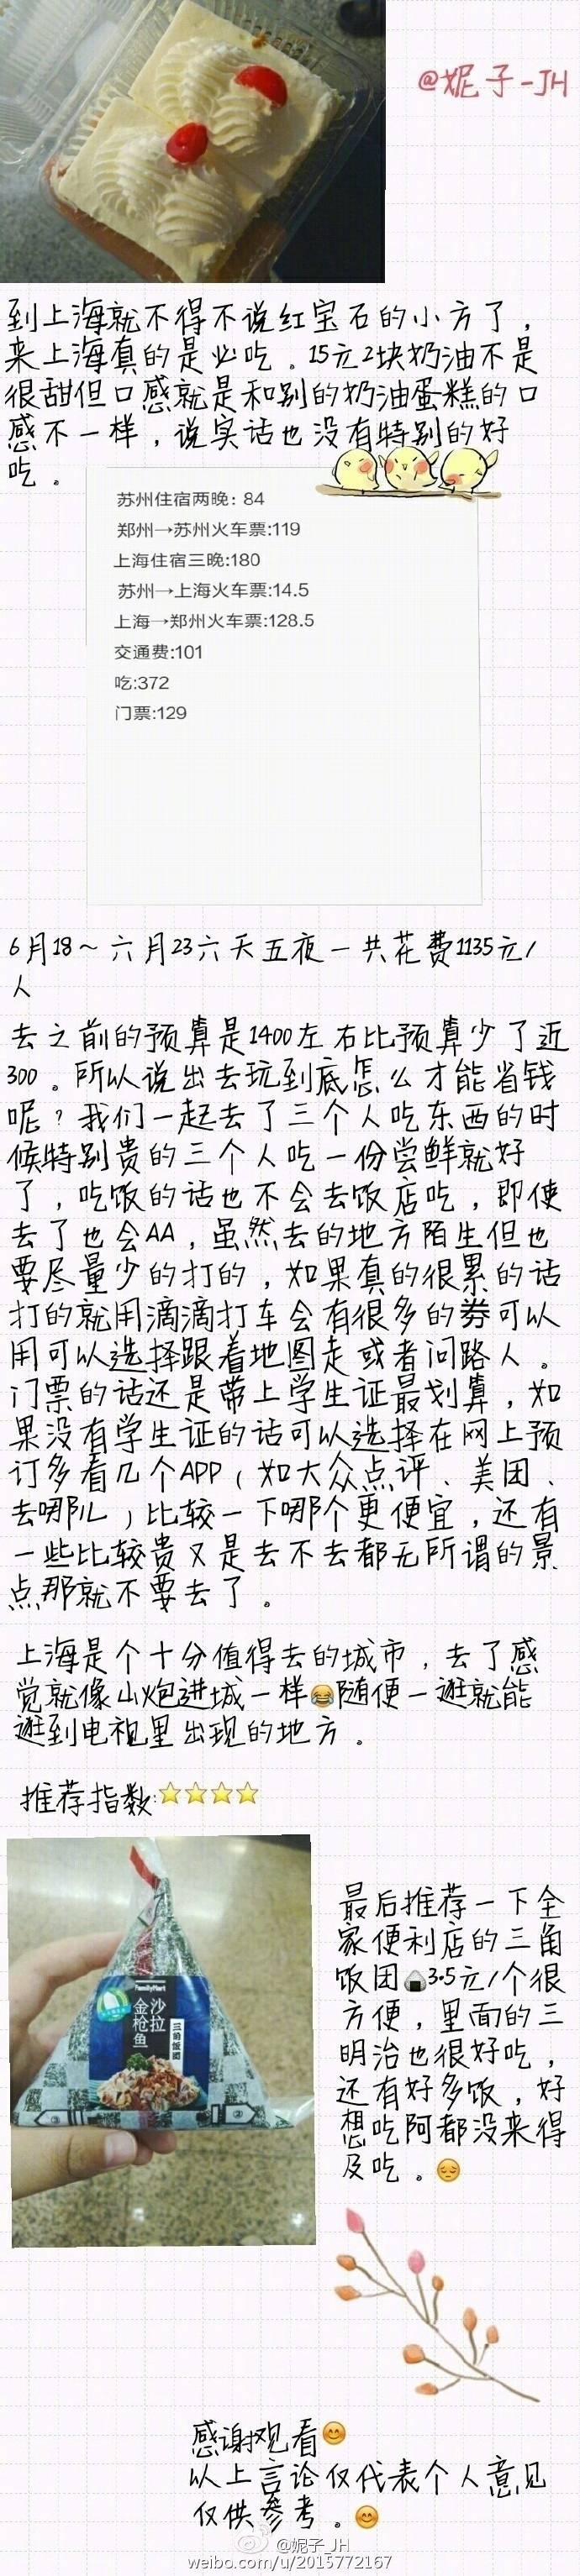 @妮子-JH
到上海就不得不说红宝石的小方了，
来上海真的是必吃。15元2块奶油不是
很甜但口感就是和别的奶油蛋糕的口
感不一样，说实话也没有特别的好
吃。
苏州住宿两晚: 84
郑州→苏州火车票:119
上海住宿三晚:180
苏州→上海火车票:14.5
上海→郑州火车票:128.5
交通费:101
吃:372
门票:129
6月18～六月23六天五夜一共花费1135元/
人
去之前的预算是1400左右比预算少了近
300。所以说出去玩到底怎么才能省钱
呢？我们一起去了三个人吃东西的时
候特别贵的三个人吃一份尝鲜就好
了，吃饭的话也不会去饭店吃，即使
去了也会AA，虽然去的地方陌生但也
要尽量少的打的，如果真的很累的话
打的就用滴滴打车会有很多的券可以
用可以选择跟着地图走或者问路人。
门票的话还是带上学生证最划算，如
果没有学生证的话可以选择在网上预
订多看几个APP（如大众点评、美团、
去哪儿）比较一下哪个更便宜，还有
一些比较贵又是去不去都无所谓的景
点那就不要去了。
上海是个十分值得去的城市，去了感
觉就像山炮进城一样😂随便一逛就能
逛到电视里出现的地方。
推荐指数:⭐⭐⭐⭐
FamilyMart
沙拉
金枪鱼
三角饭团
②
③
最后推荐一下全
家便利店的三角
饭团🍙3.5元/个很
方便，里面的三
明治也很好吃，
还有好多饭，好
想吃阿都没来得
及吃。😔
感谢观看😊
以上言论仅代表个人意见
仅供参考。😊
@妮子_JH
weibo.com/u/2015772167